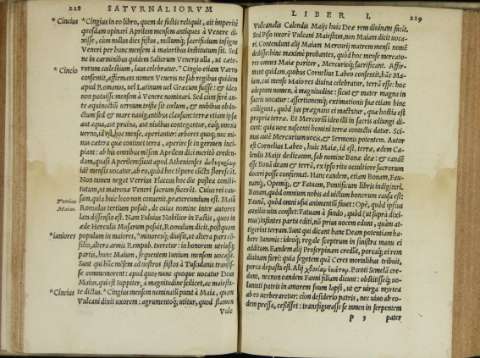 218 SATVRNALIORVM
* Cincius * Cingius in eo libro, quem de fastis reliquit, ait imperitè
quosdam opinari Aprilem mensem antiquos à Venere di-
xisse, cùm nullus dies festus, nullumq́; sacrificium insigne
Veneri per hunc mensem à maioribus institutum sit: Sed
ne in carminibus quidem Saliorum Veneris vlla, ut cæte-
* Cincio rorum cælestium, laus celebratur. * Cingio etiam Varro
consentit, affirmans nomen Veneris ne sub regibus quidem
apud Romanos, uel Latinum uel Græcum fuisse: & ideo
non potuisse mensem à Venere nominari. Sed cùm ferè an-
te æquinoctium uernum triste sit cœlum, & nubibus obdu-
ctum
aut
uerno, id est, hoc mense, aperiantur: arbores quoq; nec mi-
nus cætera quæ continet terra, aperire se in germen inci-
piant: ab his omnibus mensem Aprilem dici meritò creden-
dum, quasi Aperilem: sicut apud Athenienses
idem mensis uocatur, ab eo, quòd hoc tempore cuncta florescant.
Non tamen negat Verrius Flaccus hoc die postea consti-
tutum, ut matronæ Veneri sacrum facerent. Cuius rei cau-
sam, quia huic loco non conuenit, prætereundum est. Maium
Romulus tertium posuit, de cuius nomine inter autores
lata dissensio est. Nam Fuluius Nobilior in Fastis, quos in
æde Herculis Musarum posuit, Romulum dicit, postquam
* iuniores populum in maiores, * minoresq́; diuisit, ut altera pars con-
silio, altera armis Rempub. tueretur: in honorem utriusq́;
partis, hunc Maium, sequentem Iunium mensem uocasse.
Sunt qui hunc mensem ad nostros fastos à Tusculanis transis-
se commemorent: apud quos nunc quoque uocatur Deus
Maius, qui est Iuppiter, à magnitudine scilicet, ac maiesta-
* Cincius te dictus. * Cingius mensem nominatum putat à Maia, quam
Vulcani dixit uxorem: argumentoq́; utitur, quòd flamen
Vulc
LIBER I. 219
Vulcanalis Calendis Maijs huic Deæ rem diuinam facit.
Sed Piso uxorem Vulcani Maiestam, non Maiam dicit uoca-
ri. Contendunt alij Maiam Mercurij matrem mensi nomen
dedisse: hinc maximè probantes, quòd hoc mense mercato-
res omnes Maiæ pariter, Mercurioq́; sacrificant. Affir-
mant quidam, quibus Cornelius Labeo consentit, hanc Ma-
iam, cui mense Maio res diuina celebratur, terram esse: hoc
adeptam nomen, à magnitudine: sicut & mater magna in
sacris uocatur: assertionemq́; æstimationis suæ etiam hinc
colligunt, quòd sus prægnans ei mactatur, quæ hostia est
propria terræ. Et Mercurium ideo illi in sacris adiungi di-
cunt: quia uox nascenti homini terræ contactu datur. Sci-
mus autem Mercurium uocis, & sermonis potentem. Autor
est Cornelius Labeo, huic Maiæ, id est, terræ, ædem Ca-
lendis Maijs dedicatam, sub nomine Bonæ deæ: & eandem
esse Bonam deam & terram, ex ipso ritu occultiore sacrorum
doceri posse confirmat. Hanc eandem, etiam Bonam, Fau-
namq́;, Opemq́;, & Fatuam, Pontificum libris indigitari.
Bonam, quòd omnium nobis ad uictum bonorum causa est:
Faunam, quòd omni usui animantium fauet: Opem, quòd ipsius
auxilio uita constet: Fatuam à fando, quòd (ut supra dixi-
mus) infantes partu editi, non prius uocem edunt, quàm at-
tigerint terram. Sunt qui dicant hanc Deam potentiam ha-
bere Iunonis: ideoq́; regale sceptrum in sinistra manu ei
additum. Eandem alij Proserpinam credunt, porcaq́; ei rem
diuinam fieri: quia segetem quã Ceres mortalibus tribuit,
porca depasta est. Alij
dem, necnon eandem Fauni filiam dicunt: obstitisseq́; uo-
luntati patris in amorem suum lapsi, ut & uirga myrtea
ab eo uerberaretur: cùm desiderio patris, nec uino ab eo-
dem pressa, cessisset: transfigurasse se tamen in serpentem
p 3 pater